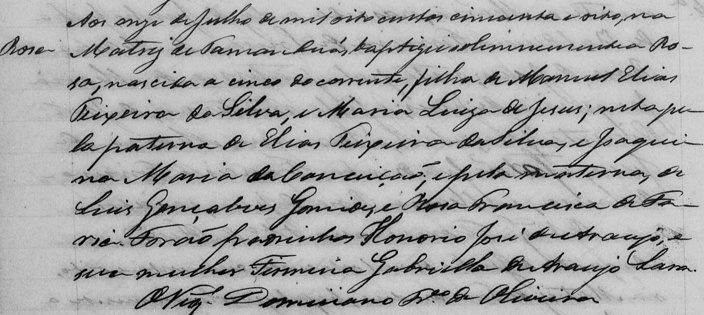 Aos onze de Julho de mil oito centos cincoenta e oito, na
Rosa Matriz de Tamanduá, baptizei solemnemente a Ro-
sa, nascida a cinco do corrente, filha de Manuel Elias
Teixeira da Silva, e Maria Luiza de Jesus; neta pe-
la paterna de Elias Teixeira da Silva, e Joaqui-
na Maria da Conceição, e pela materna, de
Luis Gonçalves Gomide, e Rosa Francisca de Fa-
ria. Forão padrinhos Honorio José de Araujo, e
sua mulher Firmina Gabriella de Araujo Lara.
O Vigº. Domiciano de Oliveira